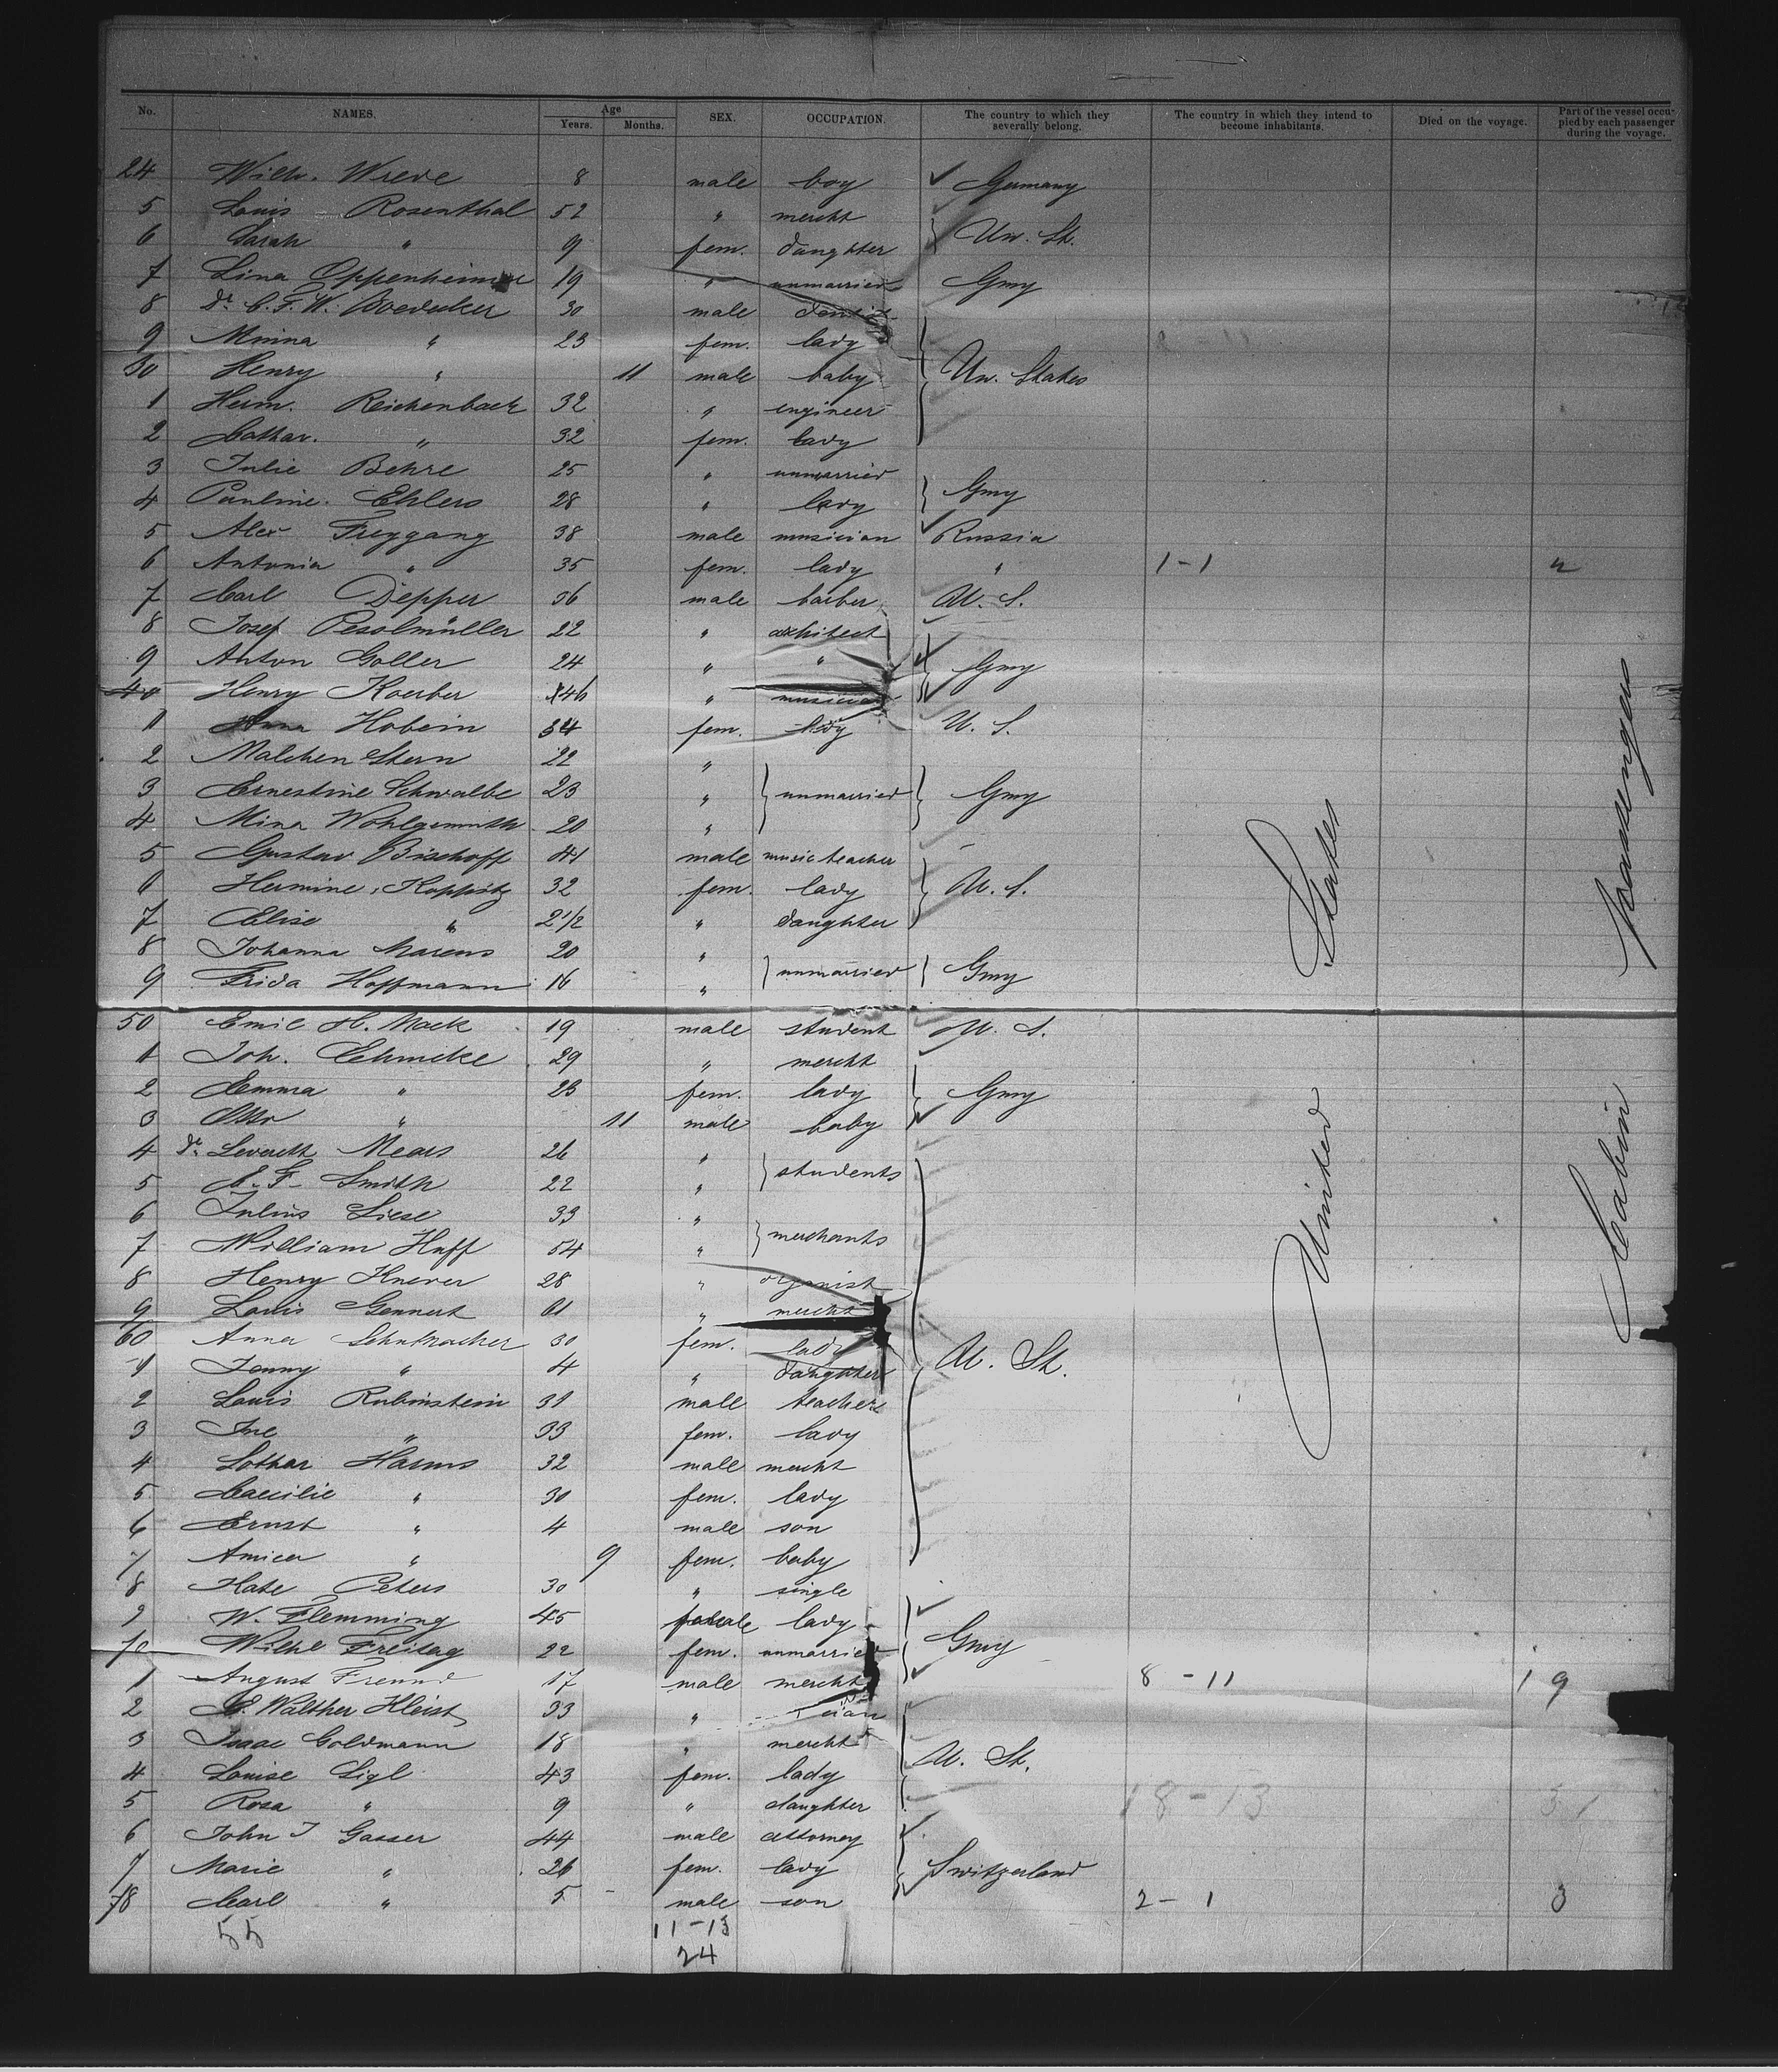 No. NAMES. Age Years. Months. SEX. OCCUPATION. The country to which they severally belong. The country in which they intend to become inhabitants. Died on the voyage. Part of the vessel occupied by each passenger during the voyage.
24 Wilh. Wrede 8 male boy Germany
5 Louis Rosenthal 52 " mercht
6 Sarah " 9 fem. daughter Un. St.
7 Lina Oppenheimer 19 " unmarried Gmy
8 Dr. C. F. W. Boedecker 30 male dentist
9 Minna " 23 fem. lady
30 Henry " 11 male baby Un. States
1 Herm. Reichenbach 32 " engineer
2 Cathar. " 32 fem. lady
3 Julie Behre 25 " unmarried
4 Pauline Ehlers 28 " lady Gmy
5 Alex Freygang 38 male musician Russia
6 Antonia " 35 fem. lady " 1-1 2
7 Carl Depper 56 male barber U. S.
8 Josef 22 " architect
9 Anton Goller 24 " " Gmy
40 Henry Koerber 46 " musician
1 Anna Hobein 34 fem. lady U. S.
2 Malchen Stern 22 "
3 Ernestine Schwalbe 23 " unmarried Gmy
4 Mina Wohlgemuth 20 "
5 Gustav Bischoff 41 male music teacher
6 Hermine Koppitz 32 fem. lady U. S.
7 Elise " 2 1/2 " daughter
8 Johanna Marcus 20 "
9 Frida Hoffmann 16 " unmarried Gmy
50 Emil H. Mack 19 male student U. S.
1 Joh. Ehmcke 29 " mercht
2 Emma " 23 fem. lady Gmy
3 Otto " 11 male baby
4 Dr. Leverett Mears 26 "
5 E. F. Smith 22 " students
6 Julius Liese 33 "
7 William Huff 54 " merchants
8 Henry 28 " organist
9 Louis Gennert 61 " mercht
60 Anna 30 fem. lady U. St.
1 Jenny " 4 " daughter
2 Louis Rubinstein 31 male teacher
3 Ine " 33 fem. lady
4 Lothar Harms 32 male mercht
5 Caecilie " 30 fem. lady
6 Ernst " 4 male son
7 " 9 fem. baby
8 Kate Peters 30 " single
9 W. Flemming 45 female lady
70 Wilhe Freitag 22 fem. unmarried Gmy
1 August Freund 17 male mercht 8-11 19
2 Walther Kleist 33 "
3 Isaac Goldmann 18 " mercht
4 Louise Sigl 43 fem. lady U. St.
5 Rosa " 9 " daughter 18-13 31
6 John J Gasser 44 male attorney
7 Marie " 26 fem. lady Switzerland
78 Carl " 5 male son 2-1 3
55 11-13
24
United States
Cabin passengers